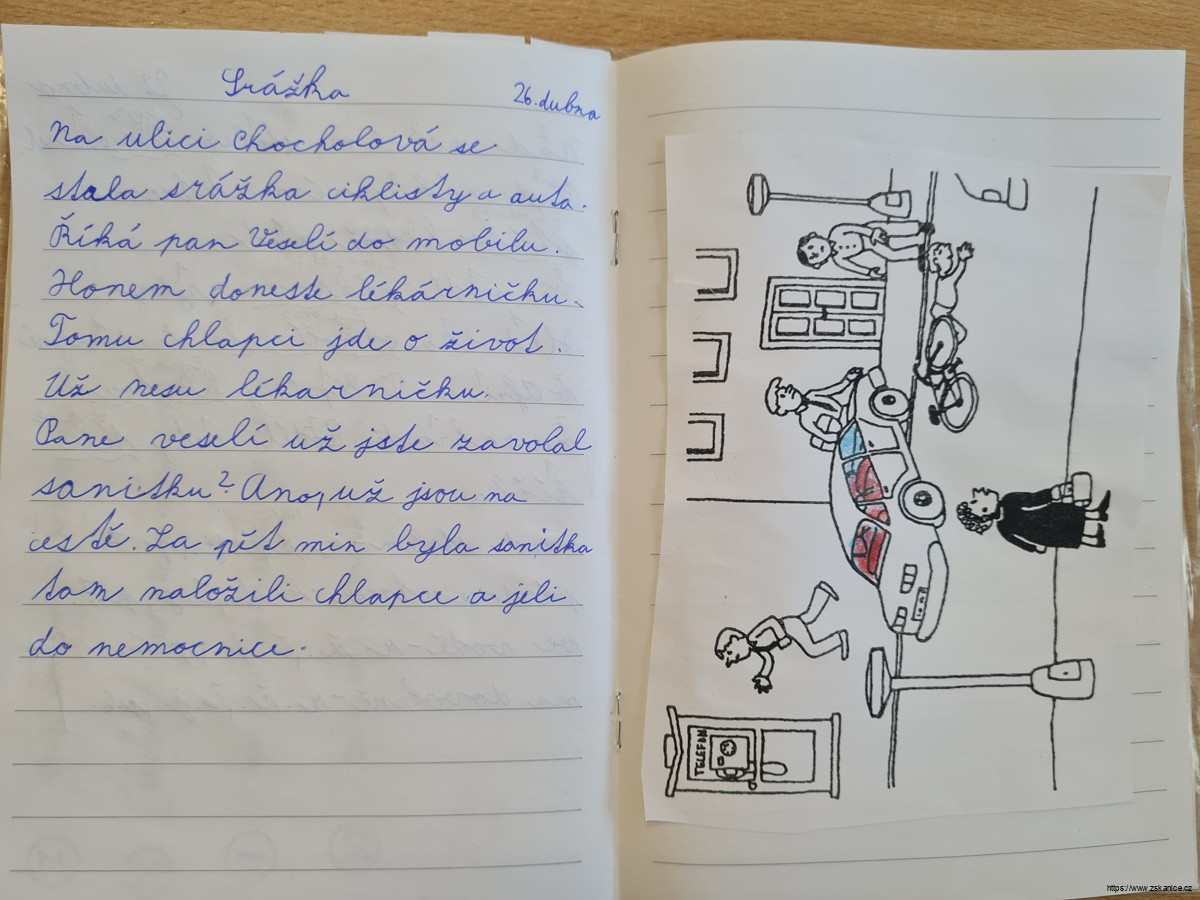 Srážka
26. dubna
Na ulici chocholová se
stala srážka ciklisty a auta.
Říká pan Veselí do mobilu.
Honem doneste lékárničku.
Tomu chlapci jde o život.
Už nesu lékarničku.
Pane veselí už jste zavolal
sanitku? Ano, už jsou na
cestě. Za pět min byla sanitka
tam naložili chlapce a jeli
do nemocnice.
TELEFON
https://www.zskanice.cz